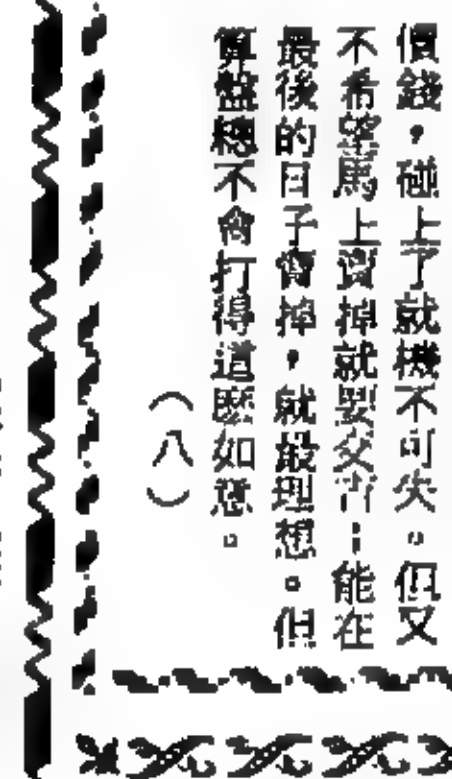 價錢，碰上了就機不可失。但又
不希望馬上賣掉就要交吉；能在
最後的日子賣掉，就最理想。但
算盤總不會打得這麼如意。
（八）